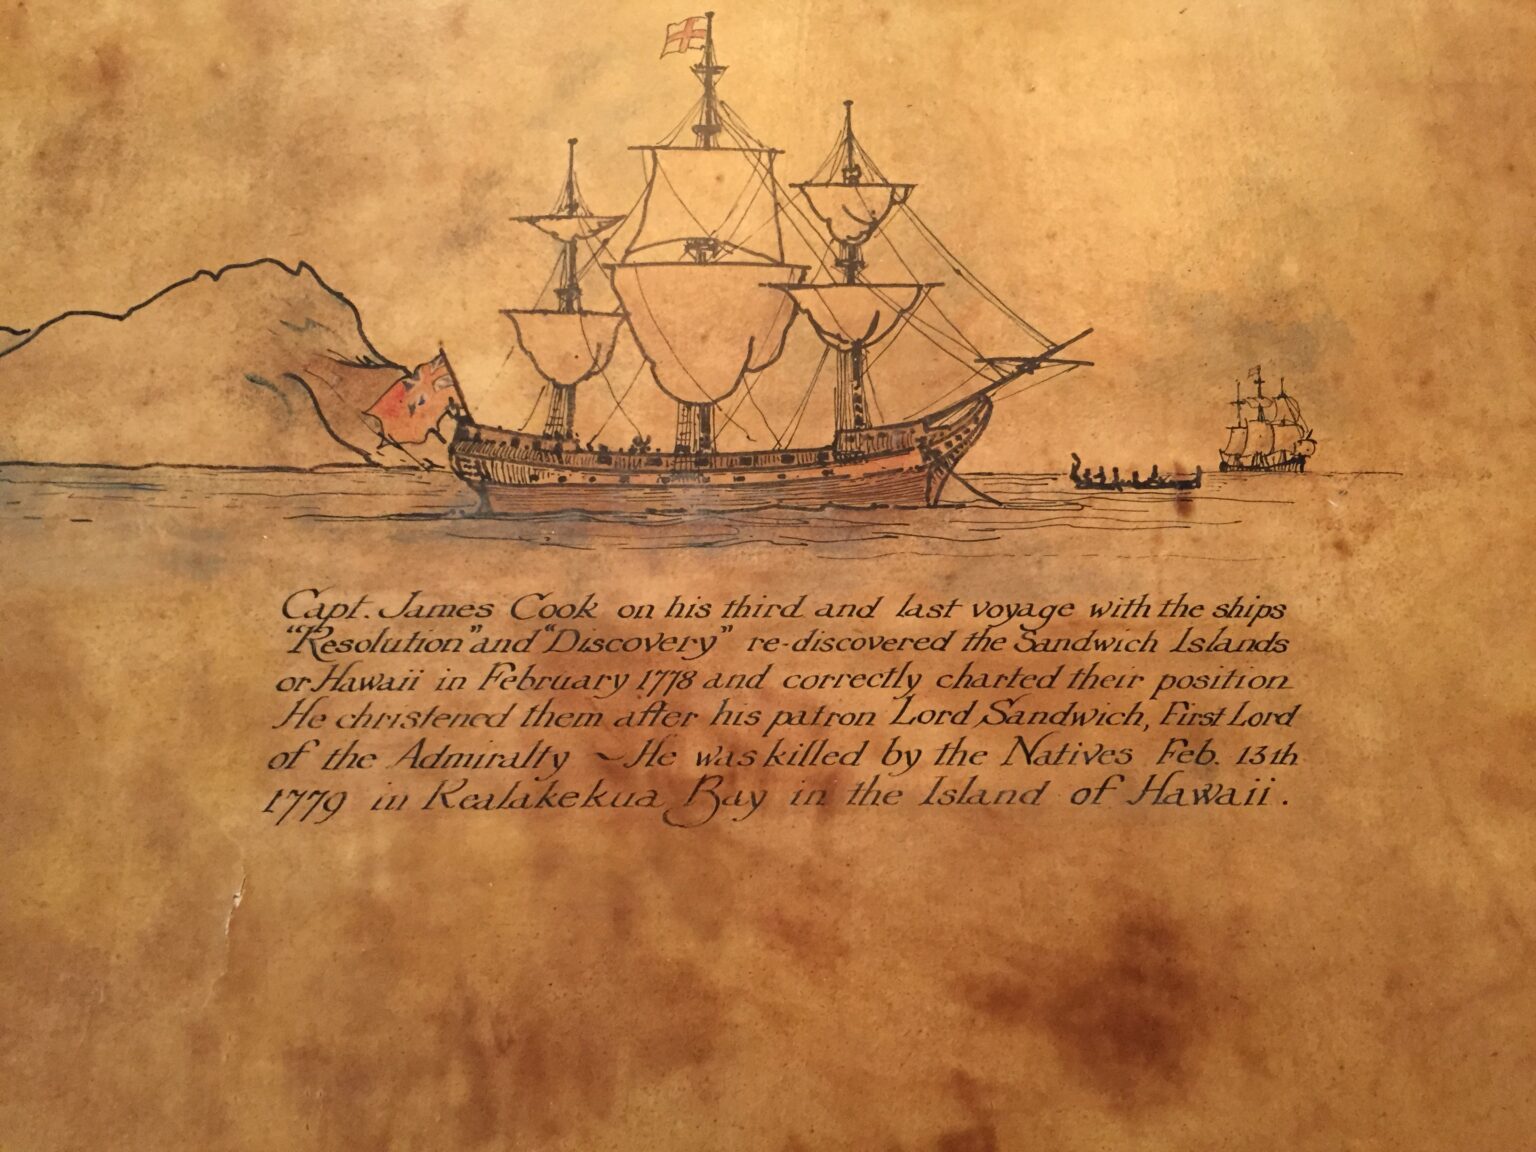 Capt. James Cook on his third and last voyage with the ships
"Resolution" and "Discovery" re-discovered the Sandwich Islands
or Hawaii in February 1778 and correctly charted their position
He christened them after his patron Lord Sandwich, First Lord
of the Admiralty ~ He was killed by the Natives Feb. 13th
1779 in Kealakekua Bay in the Island of Hawaii.